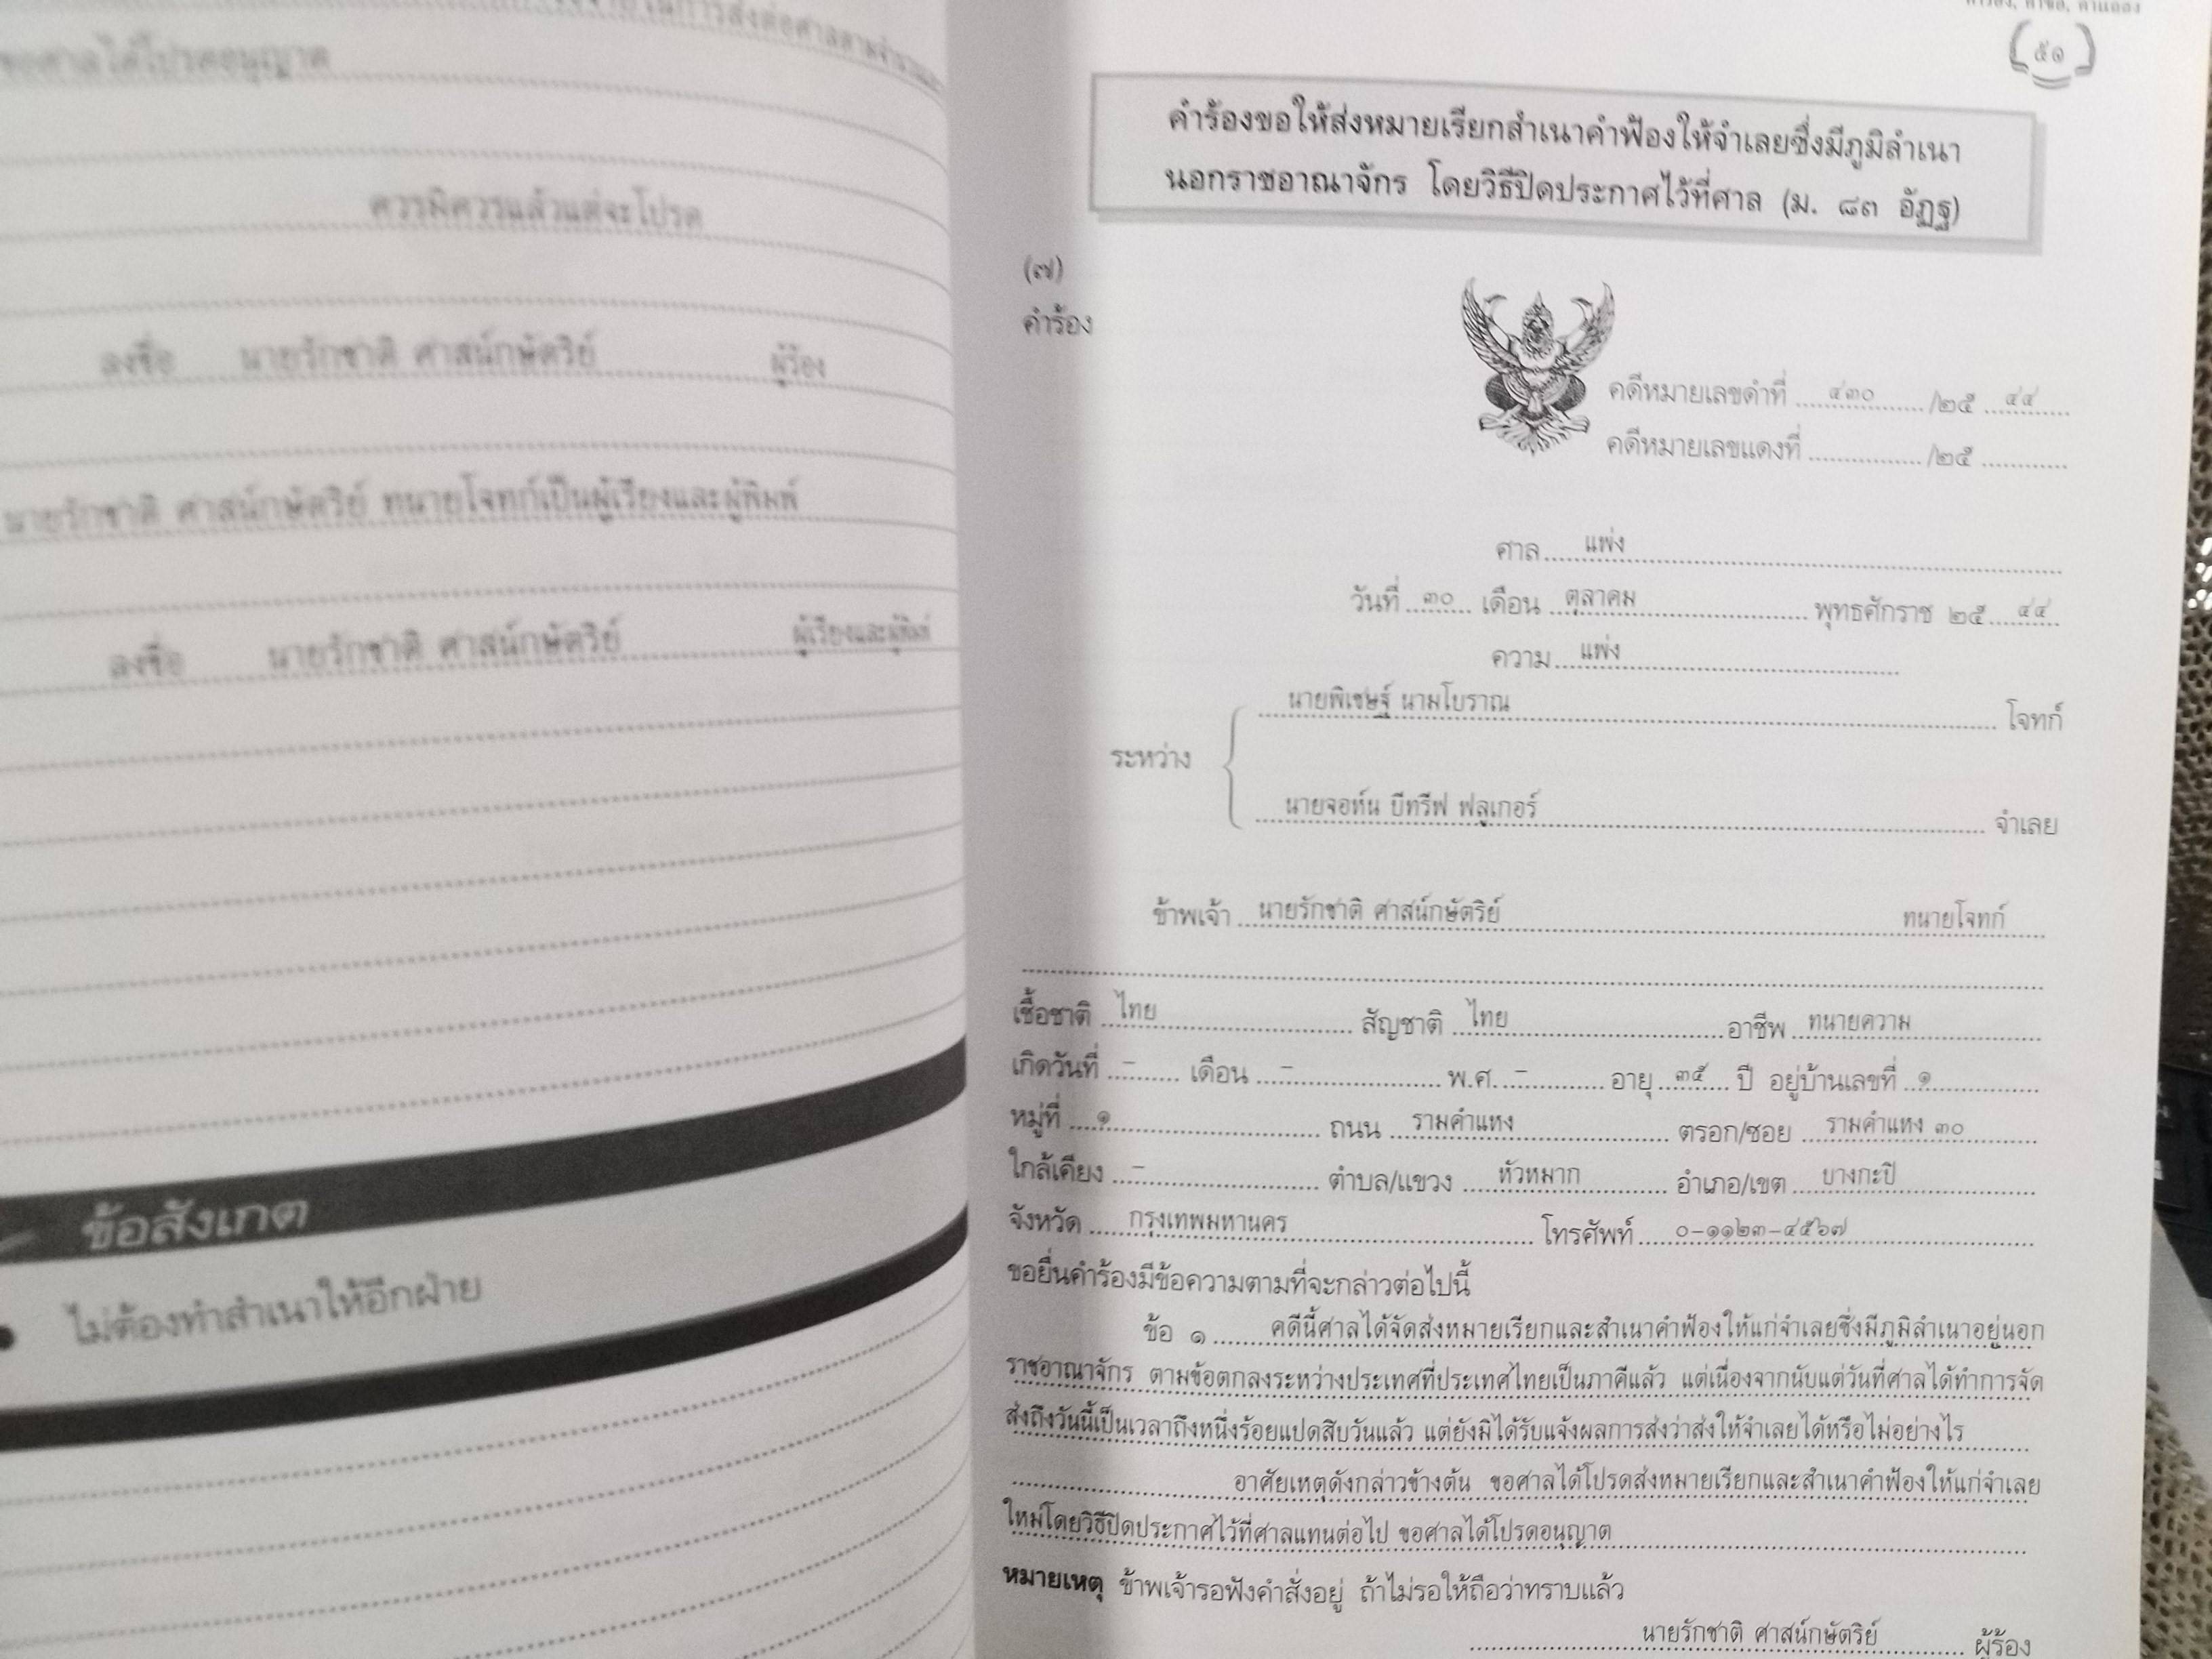 ขอศาลได้โปรดอนุญาต
ควรมิควรแล้วแต่จะโปรด
ลงชื่อ นายรักชาติ ศาสน์กษัตริย์ ผู้ร้อง
นายรักชาติ ศาสน์กษัตริย์ ทนายโจทก์เป็นผู้เรียงและผู้พิมพ์
ลงชื่อ นายรักชาติ ศาสน์กษัตริย์ ผู้เรียงและผู้พิมพ์
ข้อสังเกต
• ไม่ต้องทำสำเนาให้อีกฝ่าย
(๕๑)
คำร้องขอให้ส่งหมายเรียกสำเนาคำฟ้องให้จำเลยซึ่งมีภูมิลำเนา
นอกราชอาณาจักร โดยวิธีปิดประกาศไว้ที่ศาล (ม. ๘๓ อัฏฐ)
(๗)
คำร้อง
คดีหมายเลขดำที่ ๔๓๐ /๒๕ ๔๔
คดีหมายเลขแดงที่ /๒๕
ศาล แพ่ง
วันที่ ๓๐ เดือน ตุลาคม พุทธศักราช ๒๕ ๔๔
ความ แพ่ง
นายพิเชษฐ์ นามโบราณ โจทก์
ระหว่าง
นายจอห์น บีทรีฟ ฟลูเกอร์ จำเลย
ข้าพเจ้า นายรักชาติ ศาสน์กษัตริย์ ทนายโจทก์
เชื้อชาติ ไทย สัญชาติ ไทย อาชีพ ทนายความ
เกิดวันที่ – เดือน – พ.ศ. – อายุ ๓๕ ปี อยู่บ้านเลขที่ ๑
หมู่ที่ ๑ ถนน รามคำแหง ตรอก/ซอย รามคำแหง ๓๐
ใกล้เคียง – ตำบล/แขวง หัวหมาก อำเภอ/เขต บางกะปิ
จังหวัด กรุงเทพมหานคร โทรศัพท์ ๐-๑๑๒๓-๔๕๖๗
ขอยื่นคำร้องมีข้อความตามที่จะกล่าวต่อไปนี้
ข้อ ๑ คดีนี้ศาลได้จัดส่งหมายเรียกและสำเนาคำฟ้องให้แก่จำเลยซึ่งมีภูมิลำเนาอยู่นอก
ราชอาณาจักร ตามข้อตกลงระหว่างประเทศที่ประเทศไทยเป็นภาคีแล้ว แต่เนื่องจากนับแต่วันที่ศาลได้ทำการจัด
ส่งถึงวันนี้เป็นเวลาถึงหนึ่งร้อยแปดสิบวันแล้ว แต่ยังมิได้รับแจ้งผลการส่งว่าส่งให้จำเลยได้หรือไม่อย่างไร
อาศัยเหตุดังกล่าวข้างต้น ขอศาลได้โปรดส่งหมายเรียกและสำเนาคำฟ้องให้แก่จำเลย
ใหม่โดยวิธีปิดประกาศไว้ที่ศาลแทนต่อไป ขอศาลได้โปรดอนุญาต
หมายเหตุ ข้าพเจ้ารอฟังคำสั่งอยู่ ถ้าไม่รอให้ถือว่าทราบแล้ว
นายรักชาติ ศาสน์กษัตริย์ ผู้ร้อง